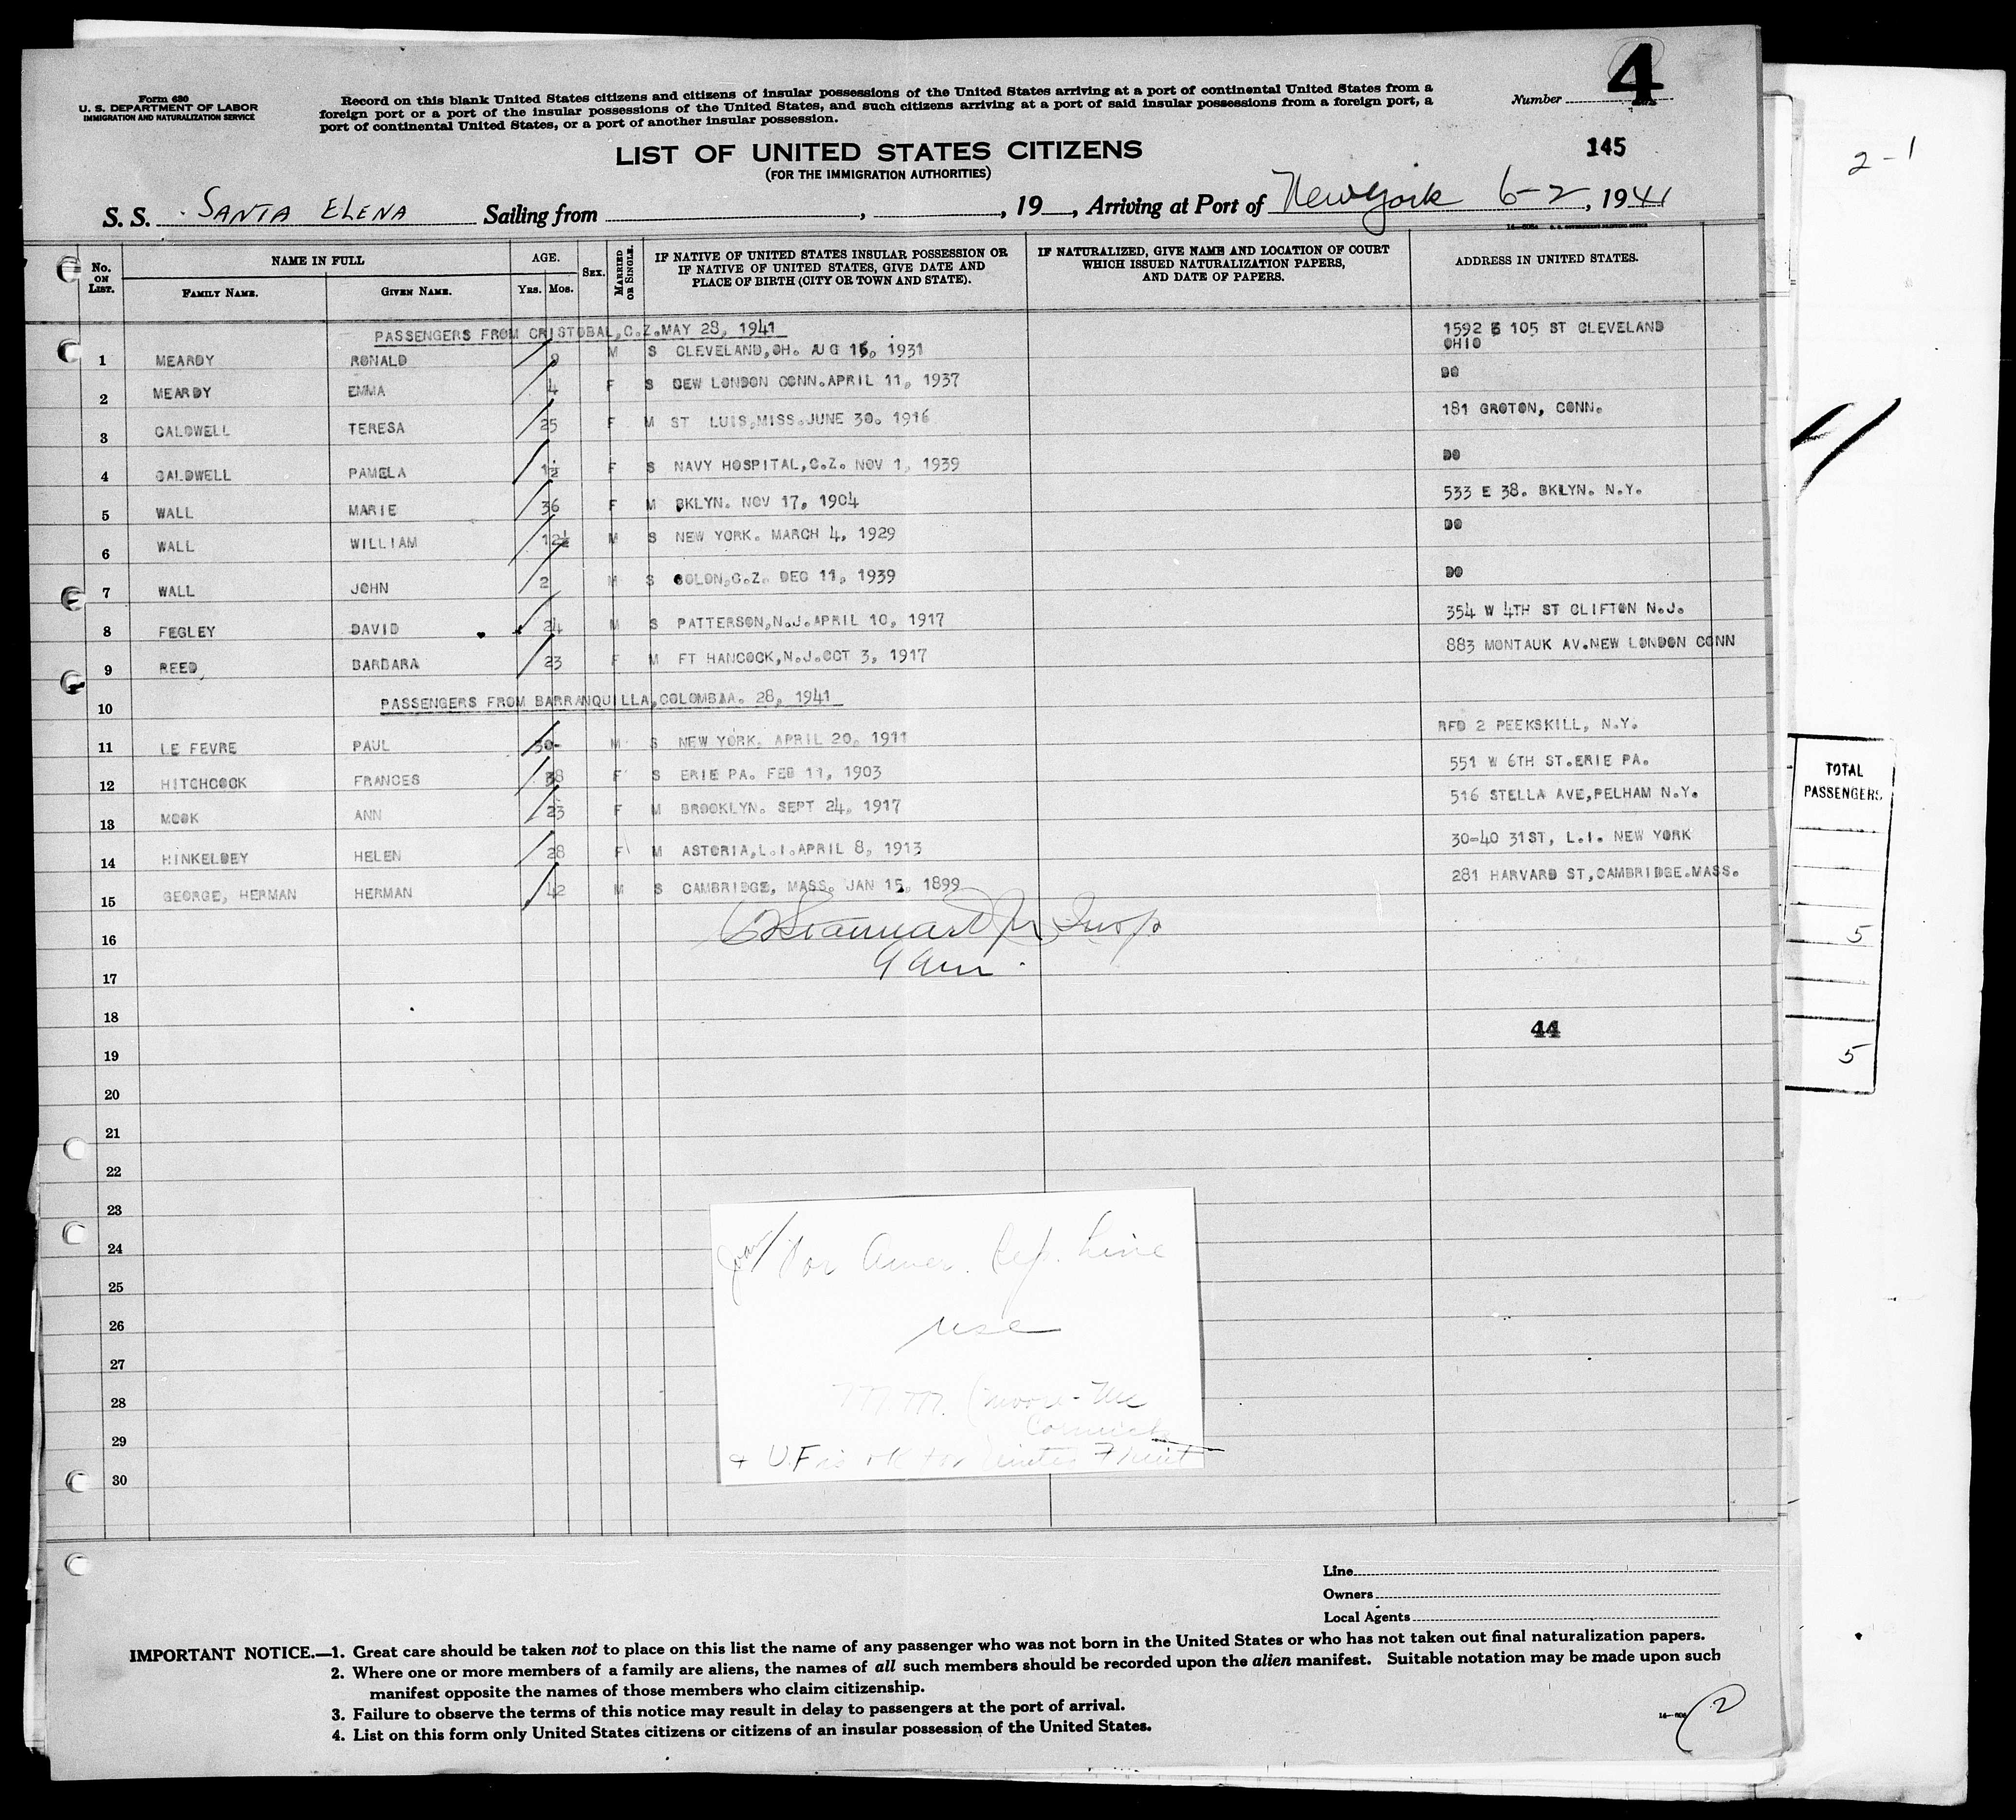 4
Form 630
U. S. DEPARTMENT OF LABOR
IMMIGRATION AND NATURALIZATION SERVICE
Record on this blank United States citizens and citizens of insular possessions of the United States arriving at a port of continental United States from a
foreign port or a port of the insular possessions of the United States, and such citizens arriving at a port of said insular possessions from a foreign port, a
port of continental United States, or a port of another insular possession.
Number
LIST OF UNITED STATES CITIZENS
(FOR THE IMMIGRATION AUTHORITIES)
145
2-1
S. S. SANTA ELENA Sailing from , , 19 , Arriving at Port of New York 6-2, 1941
No. ON LIST. NAME IN FULL FAMILY NAME. GIVEN NAME. AGE. YRS. MOS. SEX. MARRIED OR SINGLE. IF NATIVE OF UNITED STATES INSULAR POSSESSION OR IF NATIVE OF UNITED STATES, GIVE DATE AND PLACE OF BIRTH (CITY OR TOWN AND STATE). IF NATURALIZED, GIVE NAME AND LOCATION OF COURT WHICH ISSUED NATURALIZATION PAPERS, AND DATE OF PAPERS. ADDRESS IN UNITED STATES.
PASSENGERS FROM CRISTOBAL,C.Z.MAY 28, 1941
1 MEARDY RONALD 9 M S CLEVELAND,OH. AUG 15, 1931 1592 E 105 ST CLEVELAND OHIO
2 MEARDY EMMA 4 F S DEW LONDON CONN.APRIL 11, 1937 DO
3 CALDWELL TERESA 25 F M ST LUIS,MISS.JUNE 30. 1916 181 GROTON, CONN.
4 CALDWELL PAMELA 1½ F S NAVY HOSPITAL,C.Z. NOV 1, 1939 DO
5 WALL MARIE 36 F M BKLYN. NOV 17, 1904 533 E 38. BKLYN. N.Y.
6 WALL WILLIAM 12½ M S NEW YORK. MARCH 4, 1929 DO
7 WALL JOHN 2 M S COLON,C.Z. DEC 11, 1939 DO
8 FEGLEY DAVID 24 M S PATTERSON,N.J.APRIL 10, 1917 354 W 4TH ST CLIFTON N.J.
9 REED, BARBARA 23 F M FT HANCOCK,N.J.OCT 3, 1917 883 MONTAUK AV.NEW LONDON CONN
10 PASSENGERS FROM BARRANQUILLA,COLOMBIA. 28, 1941
11 LE FEVRE PAUL 30- M S NEW YORK. APRIL 20, 1911 RFD 2 PEEKSKILL, N.Y.
12 HITCHCOCK FRANCES 38 F S ERIE PA. FEB 11, 1903 551 W 6TH ST.ERIE PA.
13 MOOK ANN 23 F M BROOKLYN. SEPT 24, 1917 516 STELLA AVE,PELHAM N.Y.
14 HINKELDEY HELEN 28 F M ASTORIA,L.I.APRIL 8, 1913 30-40 31ST, L.I. NEW YORK
15 GEORGE, HERMAN HERMAN 42 M S CAMBRIDGE, MASS. JAN 15, 1899 281 HARVARD ST,CAMBRIDGE.MASS.
16
17
18
44
19
20
21
22
23
24
25
26
27
28
29
30
for Amer. Rep. Line
use
M.M. (Moore-Mc
Cormick
+ U.F. is ok for United Fruit
TOTAL
PASSENGERS
5
5
Line
Owners
Local Agents
IMPORTANT NOTICE.—1. Great care should be taken not to place on this list the name of any passenger who was not born in the United States or who has not taken out final naturalization papers.
2. Where one or more members of a family are aliens, the names of all such members should be recorded upon the alien manifest. Suitable notation may be made upon such
manifest opposite the names of those members who claim citizenship.
3. Failure to observe the terms of this notice may result in delay to passengers at the port of arrival.
4. List on this form only United States citizens or citizens of an insular possession of the United States.
2